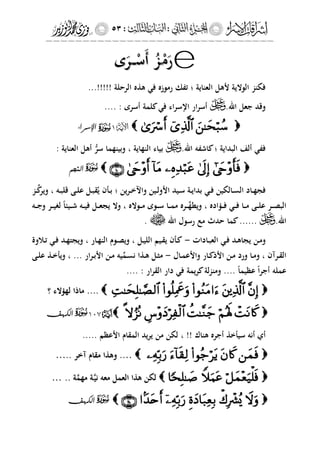 أسرار الإسراء : الباب الثاني : البداية والنهاية : ٥٣
رَمْزُ أَسْرَى
فكنز الولاية لأهل العناية ؛ تفك رموزه في هذه الرحلة !!!!!...
وقد جعل الله أسرار الإسراء في كلمة أسرى : ....
﴿ سُبْحَـٰنَ ٱلَّذِىٓ أَسْرَىٰ ﴾ ١ الإسراء
ففي ألف البداية ؛ كاشفه الله بياء النهاية ، وبينهما سرُّ أهل العناية :
﴿ فَأَوْحَىٰٓ إِلَىٰ عَبْدِهِۦ مَآ أَوْحَىٰ ﴾ النجم
فجهاد السالكين في بداية سيد الأولين والآخرين ؛ بأن يُقبل على قلبه ، ويركّز
البصر على ما في فؤاده ، ويطهره مما سوى مولاه ، ولا يجعل فيه شيئاً لغير وجه
الله ...... كما حدث مع رسول الله .
ومن يجاهد في العبادات – كأن يقيم الليل ، ويصوم النهار ، ويجتهد في تلاوة
القرآن ، وما ورد من الأذكار والأعمال – مثل هذا نسمِّيه من الأبرار ... ، ويأخذ على
عمله أجراً عظيماً .... ومنزلة كريمة في دار القرار : ....
﴿ إِنَّ ٱلَّذِينَ ءَامَنُوا۟ وَعَمِلُوا۟ ٱلصَّـٰلِحَـٰتِ ﴾ .... ماذا لهؤلاء ؟
﴿ كَانَتْ لَهُمْ جَنَّـٰتُ ٱلْفِرْدَوْسِ نُزُلًا ﴾ ١٠٧ الكهف
أي أنه سيأخذ أجره هناك !! ، لكن من يريد المقام الأعظم .....
﴿ فَمَن كَانَ يَرْجُوا۟ لِقَآءَ رَبِّهِۦ ﴾ .... وهذا مقام آخر .....
﴿ فَلْيَعْمَلْ عَمَلًا صَـٰلِحًا ﴾ لكن هذا العمل معه نيَّة مهمَّة .. ...
﴿ وَلَا يُشْرِكْ بِعِبَادَةِ رَبِّهِۦٓ أَحَدًۢا ﴾ الكهف